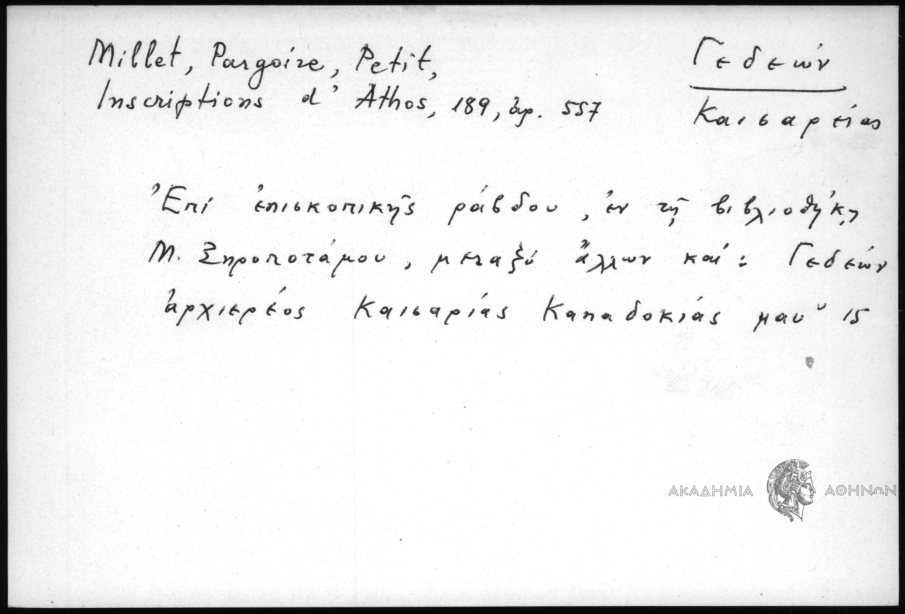 Millet, Pargoire, Petit,
Inscriptions d' Athos, 189, ἀρ. 557
Γεδεών
Καισαρείας
Ἐπί ἐπισκοπικῆς ράβδου, ἐν τῇ βιβλιοθήκῃ
Μ. Ξηροποτάμου, μεταξύ ἄλλων καί: Γεδεών
ἀρχιερέος Καισαρίας Καπαδοκίας μαυ 15
ΑΚΑΔΗΜΙΑ ΑΘΗΝΩΝ